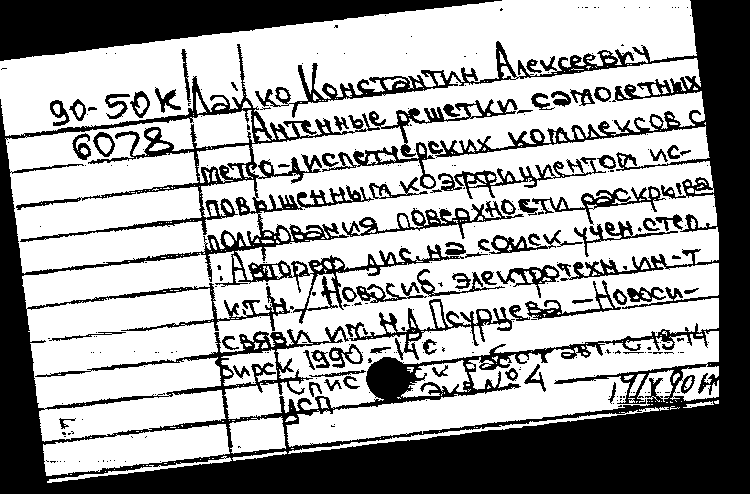 90-50К Лайко, Константин Алексеевич
6078 Антенные решетки самолетных
метео-диспетчерских комплексов с
повышенным коэффициентом ис-
пользования поверхности раскрыва
: Автореф дис. на соиск учен. степ.
к.т.н. / Новосиб. электротехн. ин-т
связи им. Н.Д Псурцева – Новоси-
бирск, 1990 – 14 с.
Спис ск работ авт. с. 13-14
ДСП экз № 4